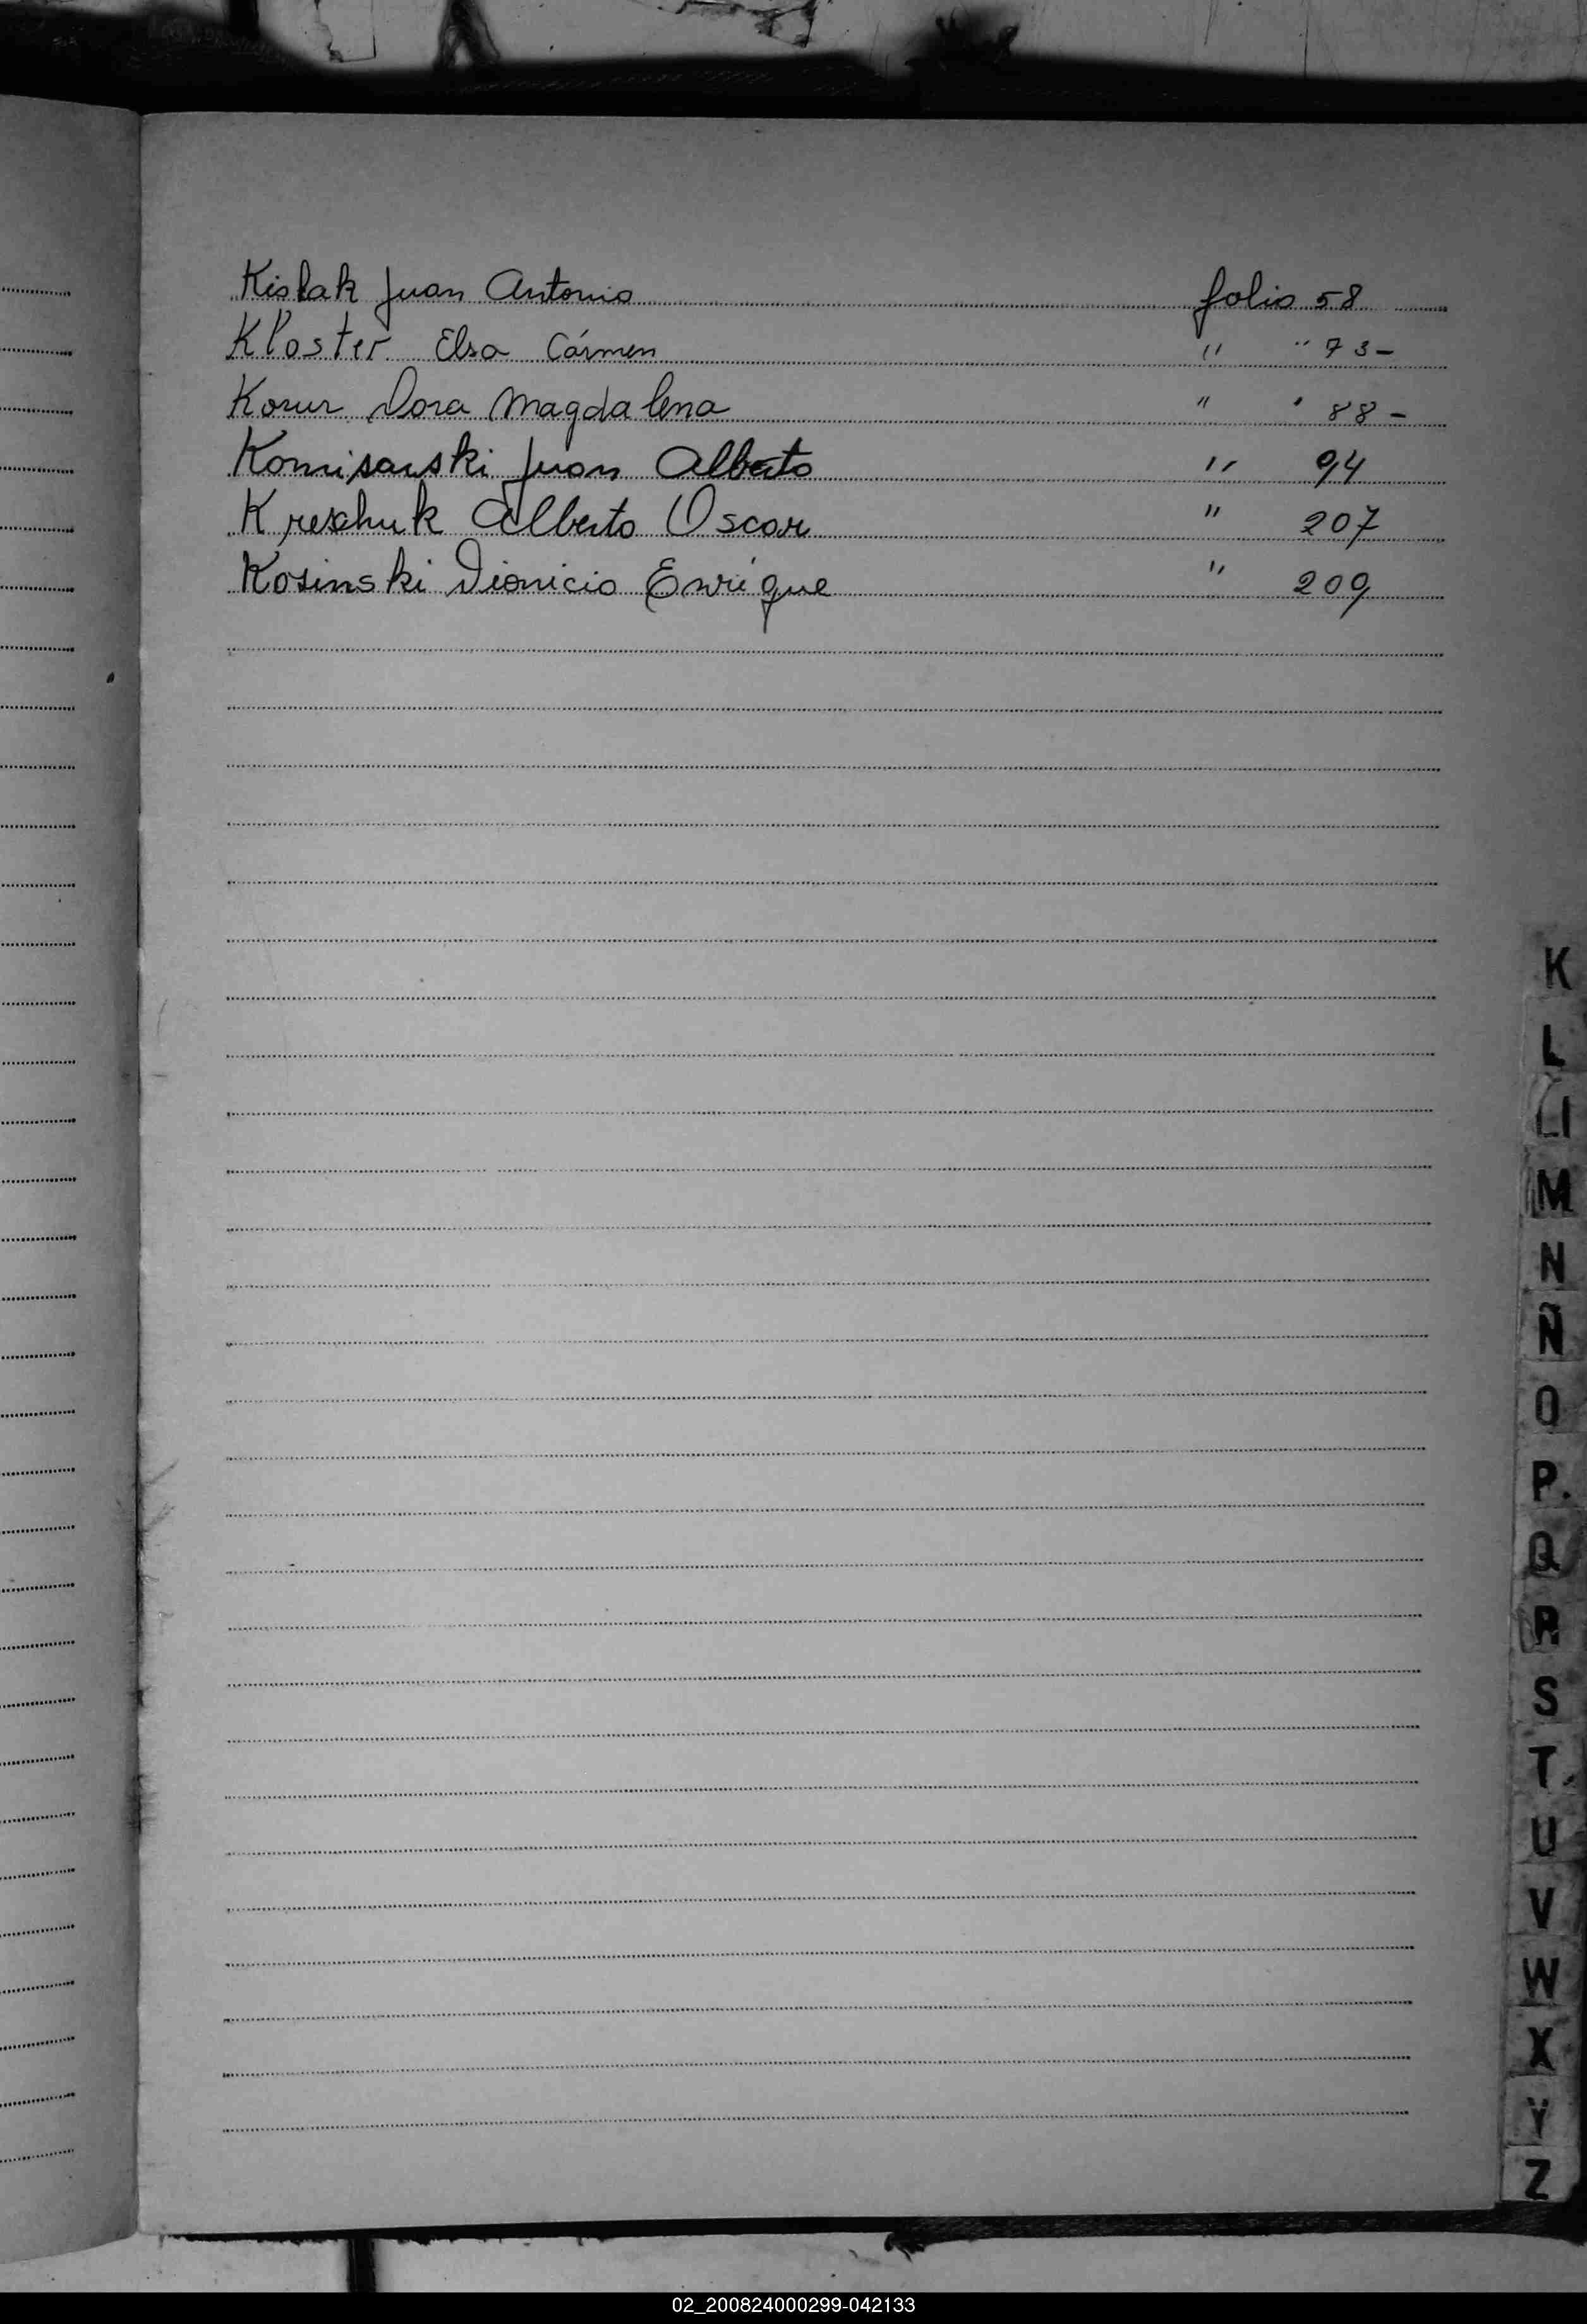 Kislak Juan Antonio folio 58
Kloster Elsa Cármen " " 73-
Dora Magdalena " " 88-
Komisarski Juan Alberto " 94
Kreschuk Alberto Oscar " 207
Kosinski Dionicio Enrique " 209
K
L
Ll
M
N
Ñ
O
P
Q
R
S
T
U
V
W
X
Y
Z
02_200824000299-042133